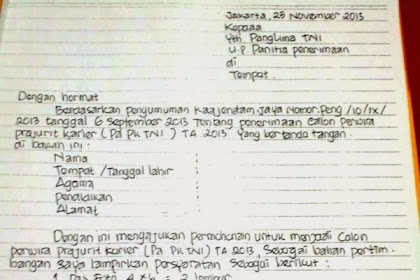 Jakarta, 25 November 2013
Kepada
Yth. Panglima TNI
u.p. Panitia penerimaan
di
Tempat.
Dengan hormat
Berdasarkan pengumuman Kaajendam Jaya Nomor. Peng /10/IX/
2013 tanggal 6 September 2013 Tentang penerimaan Calon Perwira
prajurit Karier (Pa PK TNI) TA 2013 yang bertanda tangan.
di bawah ini :
Nama :
Tempat /Tanggal lahir :
Agama :
Pendidikan :
Alamat :
Dengan ini mengajukan permohonan untuk menjadi Calon
perwira prajurit karier (Pa PK TNI) TA 2013, Sebagai bahan pertim.
bangan saya lampirkan persyaratan sebagai berikut :
1. Pas Foto 4 x 6 = 2 lembar